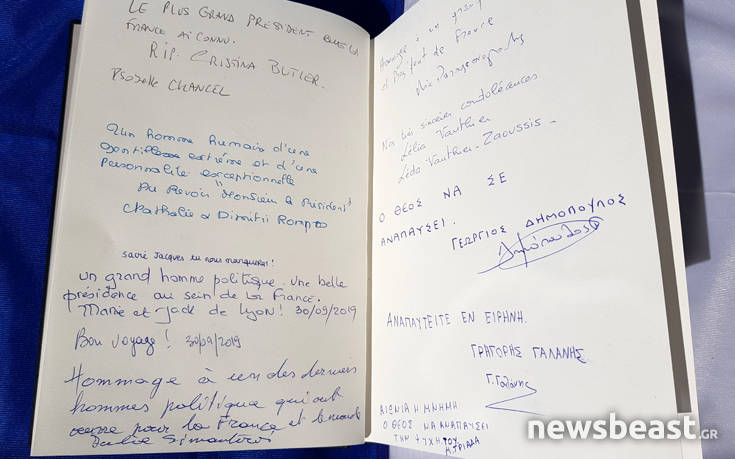 LE PLUS GRAND PRESIDENT QUE LA
FRANCE AI CONNU.
RIP. CRISTINA BUTLER.
CHANCEL
Un homme humain d'une
gentillesse extrême et d'une
personnalité exceptionnelle
Au Revoir "Monsieur le Président"
Nathalie & Dimitri
sacré Jacques tu nous manqueras!
un grand homme politique. une belle
présidence au sein de la France.
Marie et Jack de Lyon! 30/09/2019
Bon voyage! 30/09/2019
Hommage à un des derniers
hommes politique qui ont
œuvré pour la France et le monde
Hommage à un grand
Président de France
Nos très sincères condoléances
Lélia Vauthier
Léda Vauthier-Zaoussis-
Ο ΘΕΟΣ ΝΑ ΣΕ
ΑΝΑΠΑΥΣΕΙ.
ΓΕΩΡΓΙΟΣ ΔΗΜΟΠΟΥΛΟΣ
ΑΝΑΠΑΥΤΕΙΤΕ ΕΝ ΕΙΡΗΝΗ.
ΓΡΗΓΟΡΗΣ ΓΑΛΑΝΗΣ
Γ. Γαλάνης
ΑΙΩΝΙΑ Η ΜΝΗΜΗ
Ο ΘΕΟΣ ΝΑ ΑΝΑΠΑΥΣΕΙ
ΤΗΝ ΨΥΧΗ ΤΟΥ
newsbeast.GR